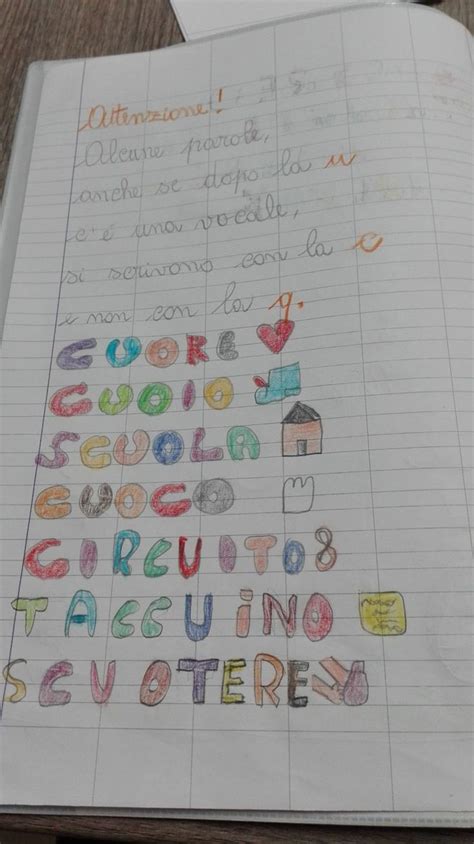 Attenzione!
Alcune parole,
anche se dopo la u
c'è una vocale,
si scrivono con la c
e non con la q.
CUORE
CUOIO
SCUOLA
CUOCO
CIRCUITO
TACCUINO
SCUOTERE